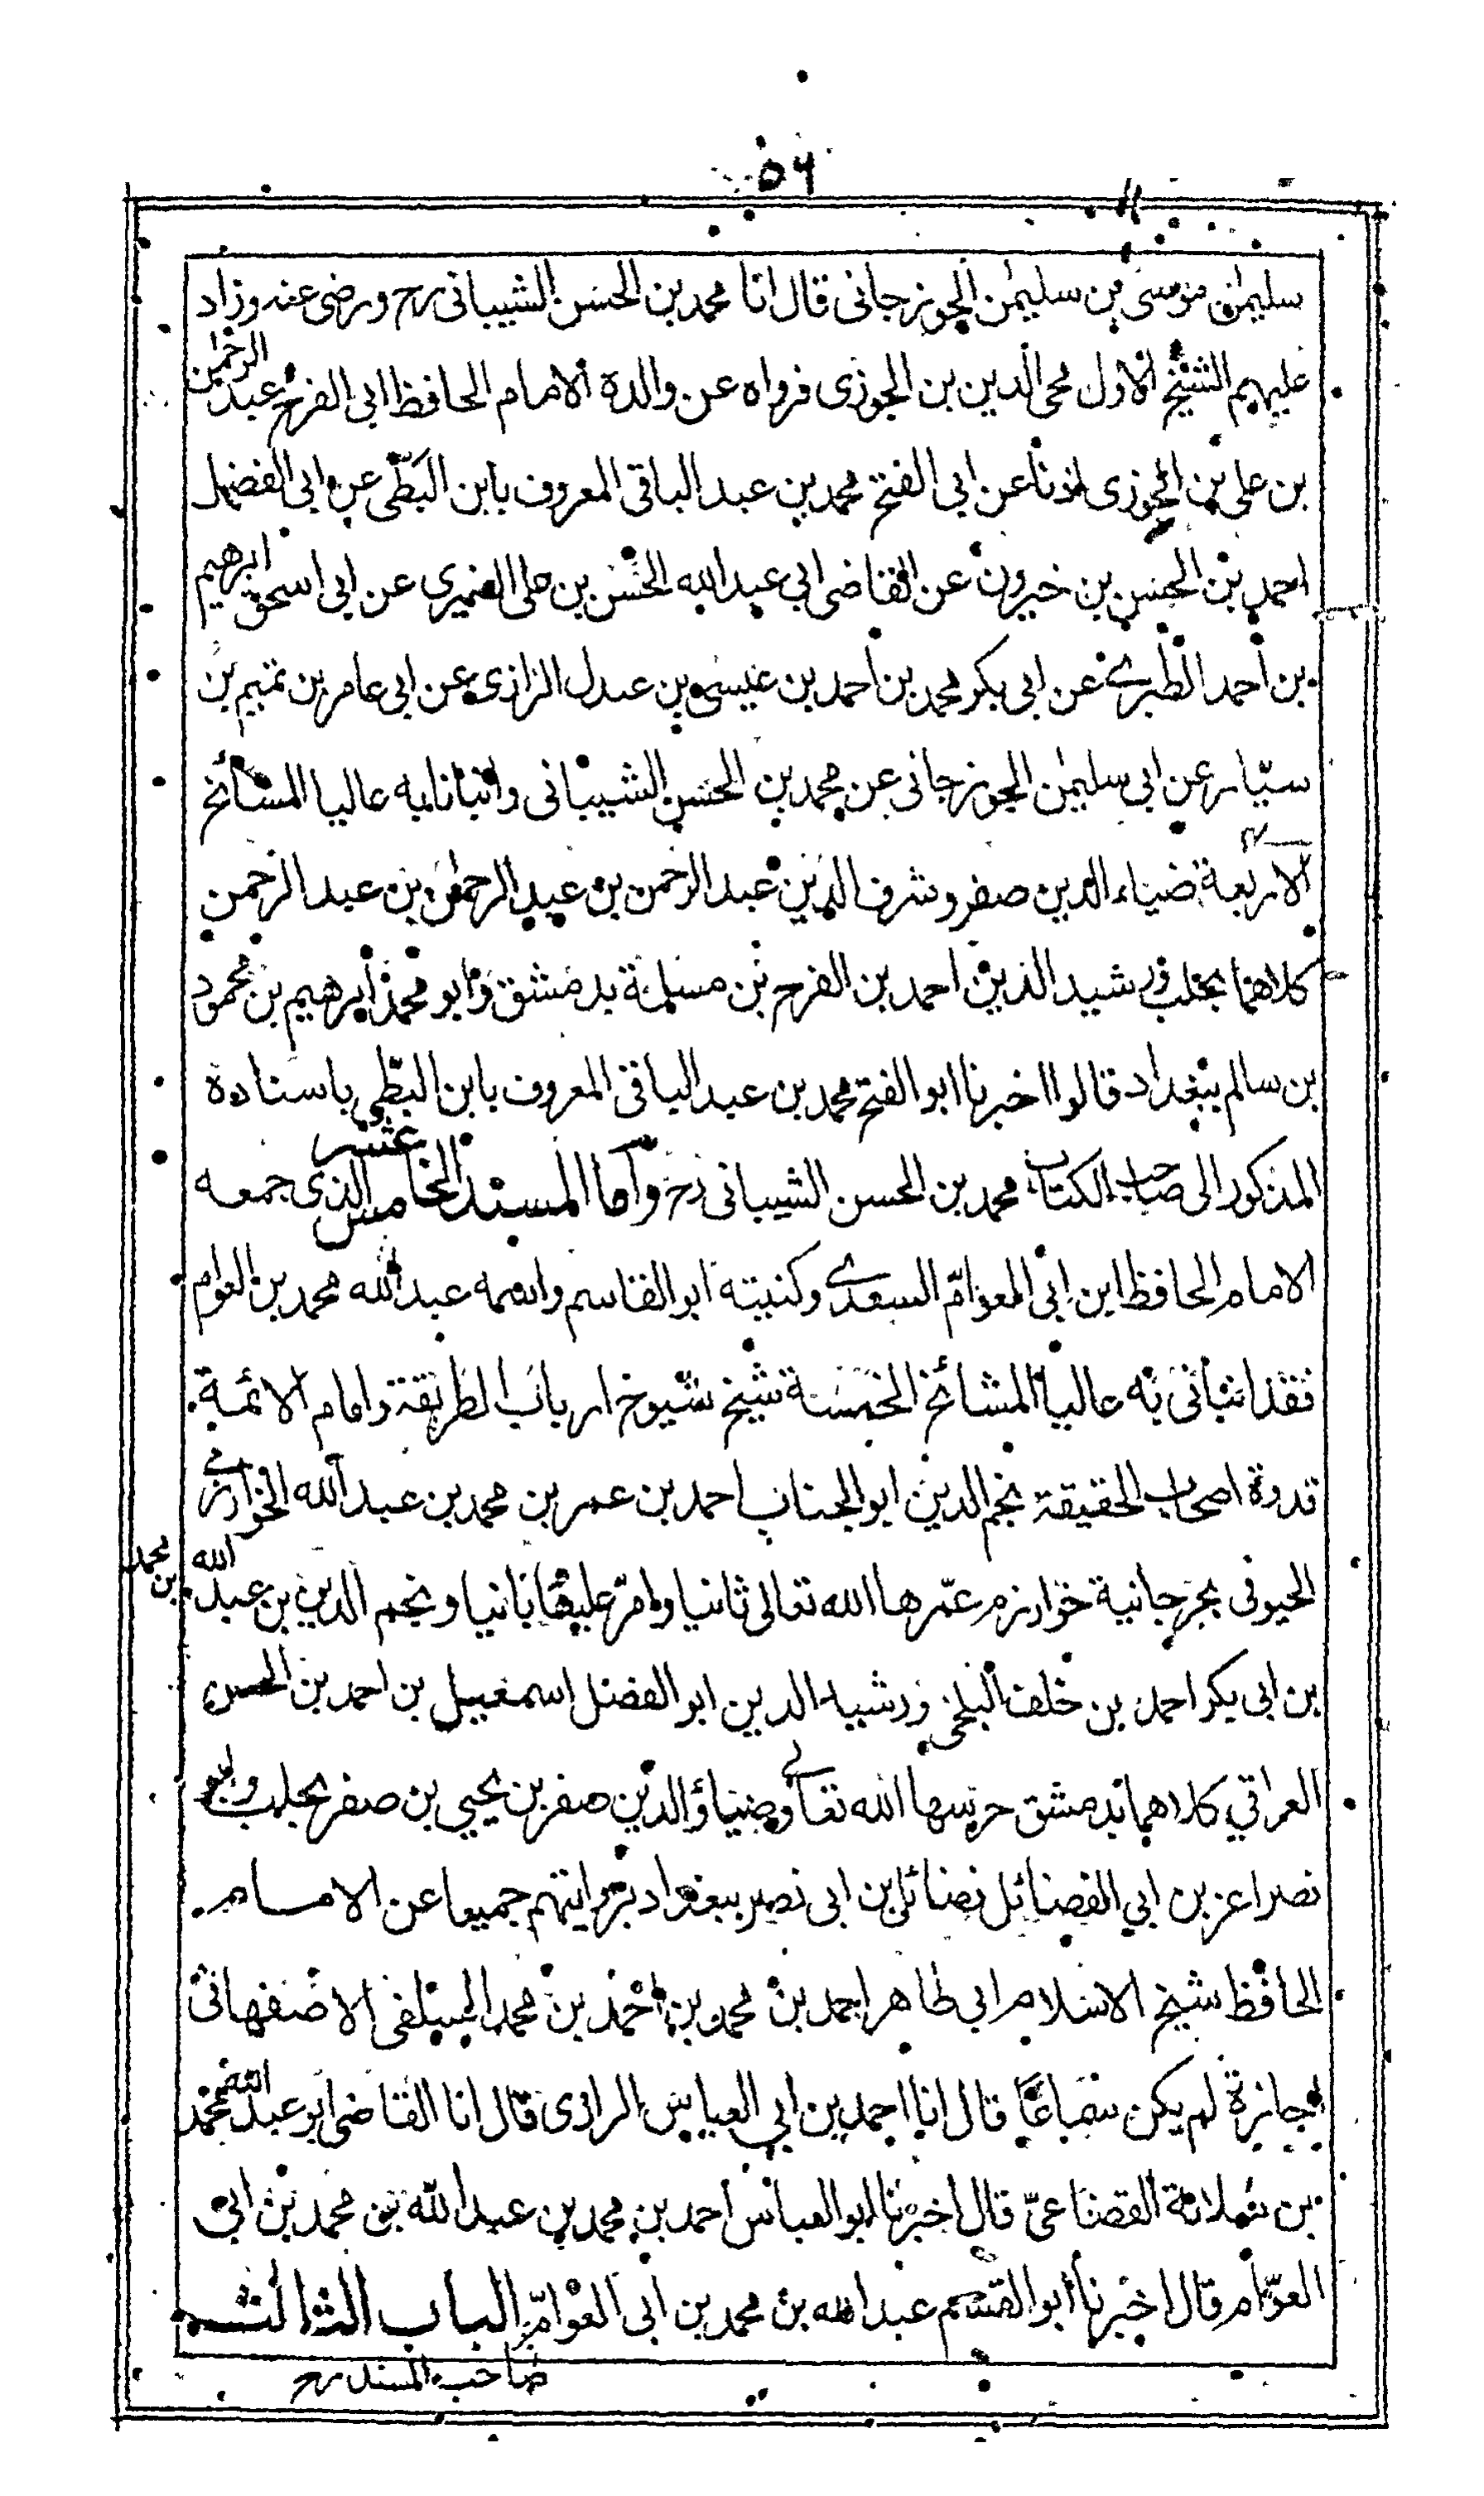 ٥٦
سليمان موسى بن سليمن الجوزجانى قال انا محمد بن الحسن الشيبانى رح ورضى عنه وزاد
عليهم الشيخ الاول محى الدين بن الجوزى فرواه عن والده الامام الحافظ ابى الفرج عبد الرحمن
بن على بن الجوزى اذنا عن ابى الفتح محمد بن عبد الباقى المعروف بابن البطّى عن ابى الفضل
احمد بن الحسن بن خيرون عن القاضى ابى عبد الله الحسن بن على الصميرى عن ابى اسحق ابرهيم
بن احمد الطبرى عن ابى بكر محمد بن احمد بن عيسى بن عبدل الرازى عن ابى عامر بن تميم بن
سيّار عن ابى سليمن الجوزجانى عن محمد بن الحسن الشيبانى وانبانا به عاليا المشائخ
الاربعة ضياء الدين صقر وشرف الدين عبد الرحمن بن عبد الرحمن بن عبد الرحمن
كلاهما بحلب ورشيد الدين احمد بن الفرج بن مسلمة بدمشق وابو محمد ابرهيم بن محمود
بن سالم ببغداد قالوا اخبرنا ابو الفتح محمد بن عبد الباقى المعروف بابن البطّى باسناده
المذكور الى صاحب الكتاب محمد بن الحسن الشيبانى رح واما المسند الخامس عشر الذى جمعه
الامام الحافظ ابن ابى العوامّ السعدى وكنيته ابو القاسم واسمه عبد الله محمد بن العوام
فقد انبأنى به عاليا المشائخ الخمسة شيخ شيوخ ارباب الطريقة وامام الائمة
قدوة اصحاب الحقيقة نجم الدين ابو الجناب احمد بن عمر بن محمد بن عبد الله الخوارزمى
الحيوفى بجرجانية خوارزم عمّرها الله تعالى ثانيا وامرّ عليها بانيا ونجم الدين بن عبد الله بن محمد
بن ابى بكر احمد بن خلف البلخى ورشيد الدين ابو الفضل اسمعيل بن احمد بن الحسن
العراقي كلاهما بدمشق حرسها الله تعالى وضياؤ الدين صقر بن يحيى بن صقر بحلب وابو
نصر اعز بن ابي الفضائل فضائل بن ابى نصر ببغداد بروايتهم جميعا عن الامام
الحافظ شيخ الاسلام ابى طاهر احمد بن محمد بن احمد بن محمد السلفى الاصفهانى
اجازة لم يكن سماعًا قال انا احمد بن ابى العباس الرازى قال انا القاضى ابو عبد الله محمد
بن سلامة القضاعىّ قال اخبرنا ابو العباس احمد بن محمد بن عبد الله بن محمد بن ابى
العوّام قال اخبرنا ابو القسم عبد الله بن محمد بن ابى العوامّ الباب الثالث
صاحب المسند رح